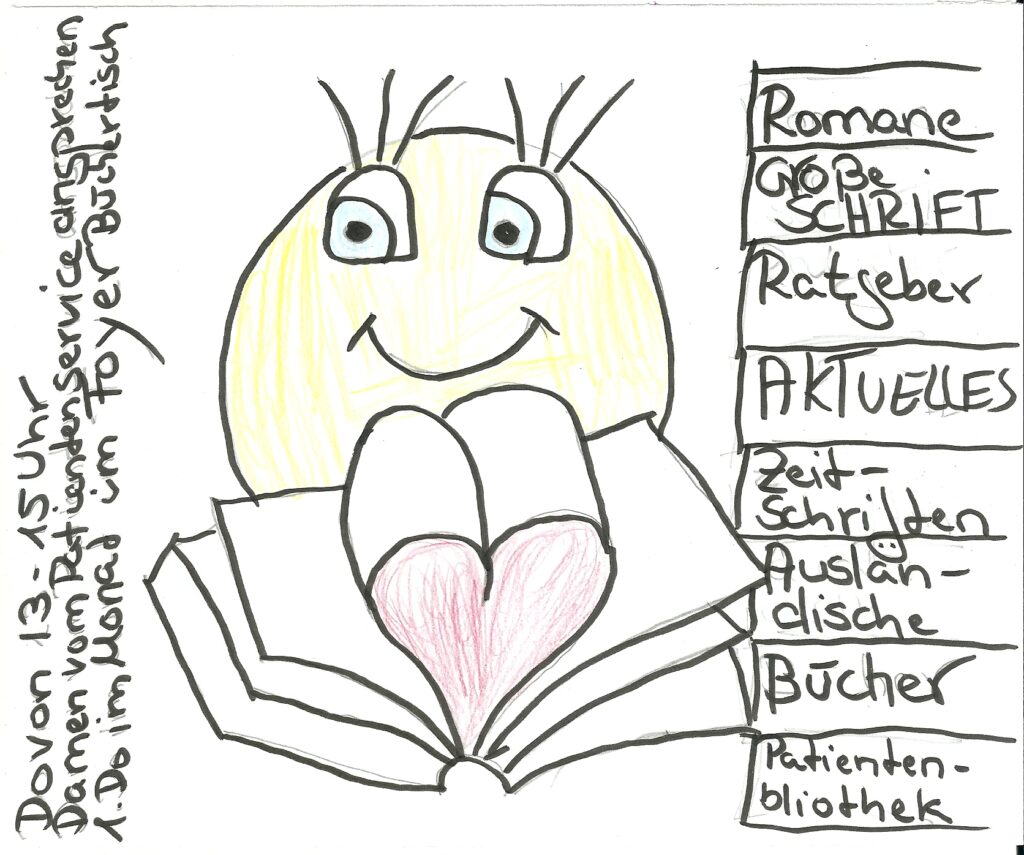 Do von 13-15 Uhr
Damen vom Patientenservice ansprechen
1. Do im Monat im Foyer Büchertisch
Romane
GROßE
SCHRIFT
Ratgeber
AKTUELLES
Zeit-
schriften
Auslän-
dische
Bücher
Patienten-
bliothek